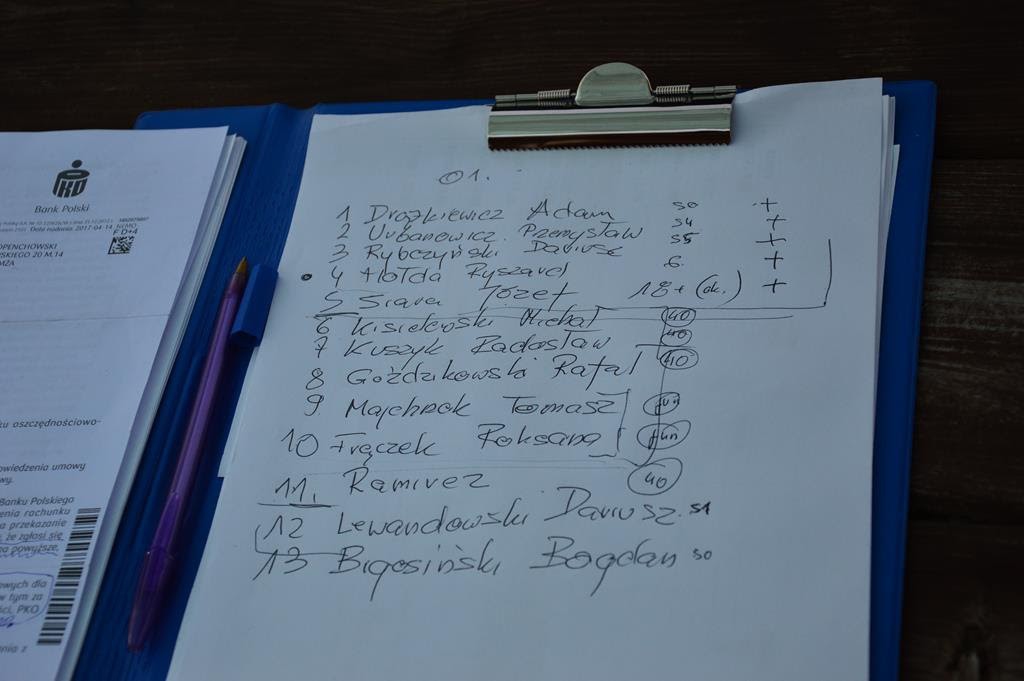 PKO
Bank Polski
Data nadania 2017-04-14
F D+4
OPENCHOWSKI
RSKIEGO 20 M.14
MŻA
ku oszczędnościowo-
owiedzenia umowy
wy.
Banku Polskiego
zenia rachunku
a przekazanie
że zgłosi się
na powyższe.
owych dla
w tym za
ści, PKO
enia z
01.
1 Drożkiewicz Adam 50 +
2 Urbanowicz Przemysław 54 +
3 Rybczyński Dariusz 55 +
4 Hołda Ryszard 6. +
5 Siara Józef 18+ (ok.) +
6 Kisielewski Michał 40
7 Kuszyk Radosław 40
8 Goździkowski Rafał 40
9 Majchrak Tomasz fun
10 Frączek Roksana fun
11. Ramirez 40
12 Lewandowski Dariusz 51
13 Bigosiński Bogdan 50